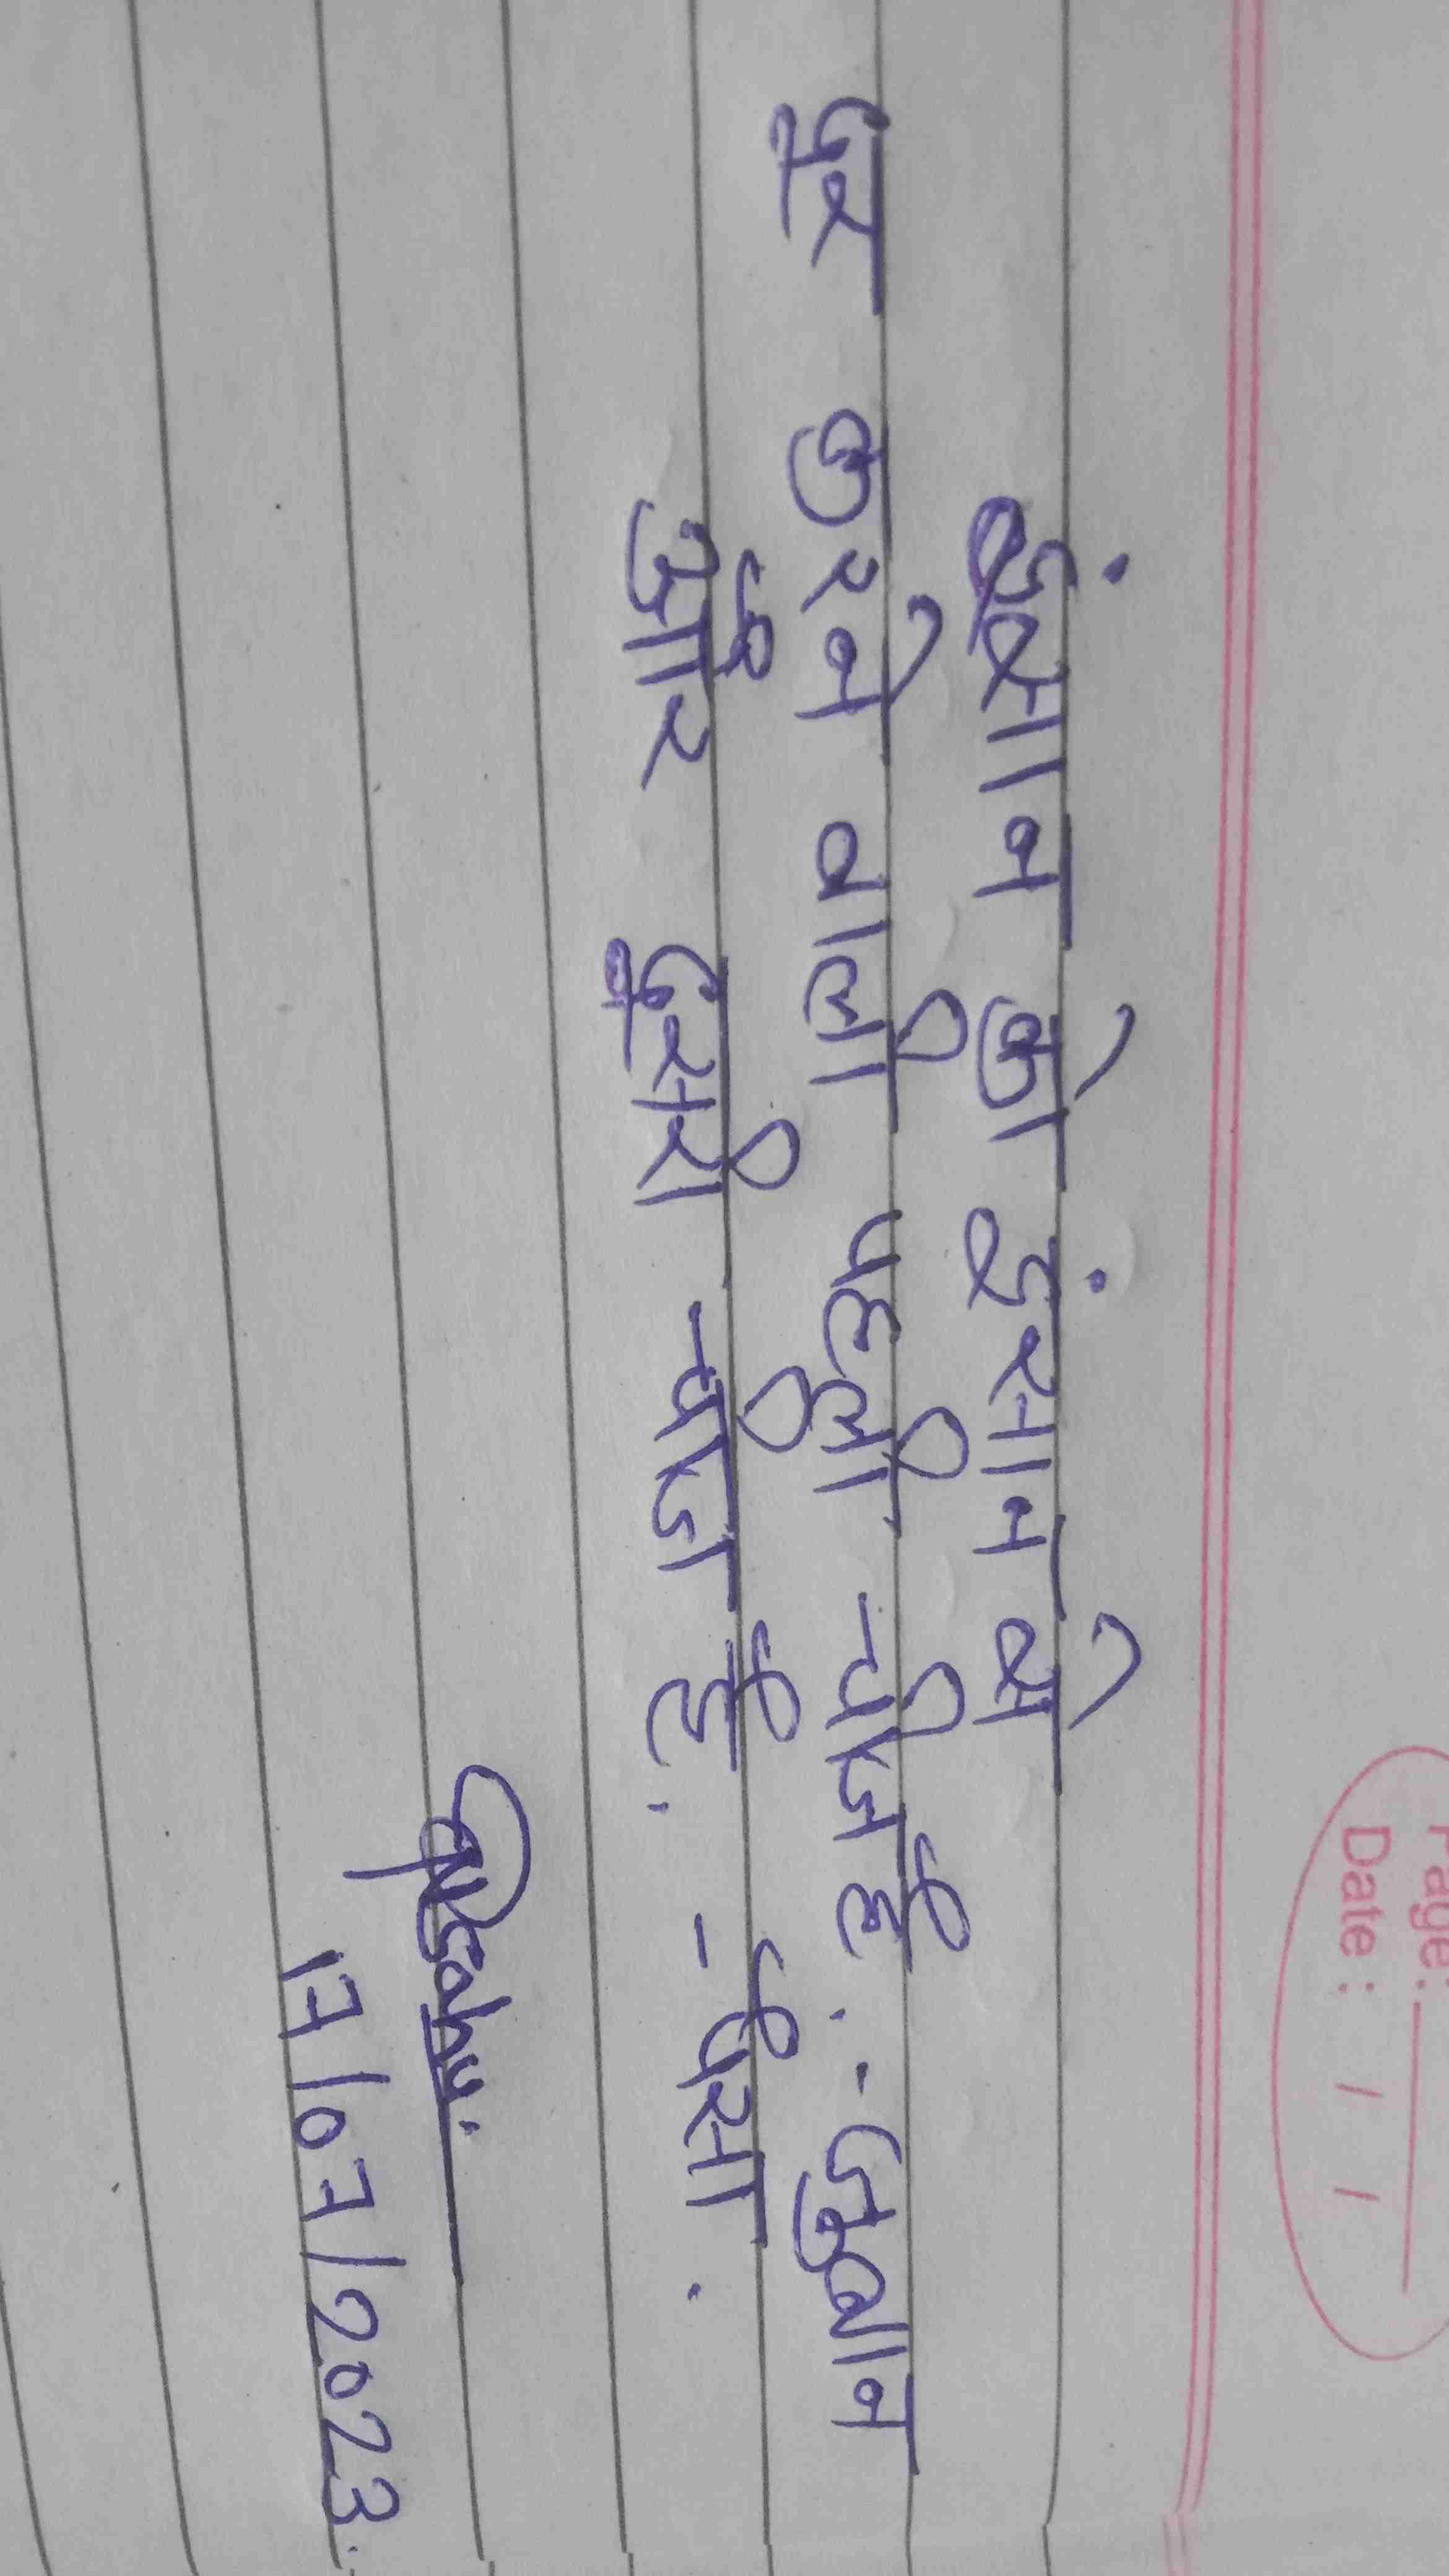 Page:
Date: / /
इंसान को इंसान से
दूर करने वाली पहली चीज है. - जुबान
और दूसरी चीज है. - पैसा .
Sahu.
17/07/2023.